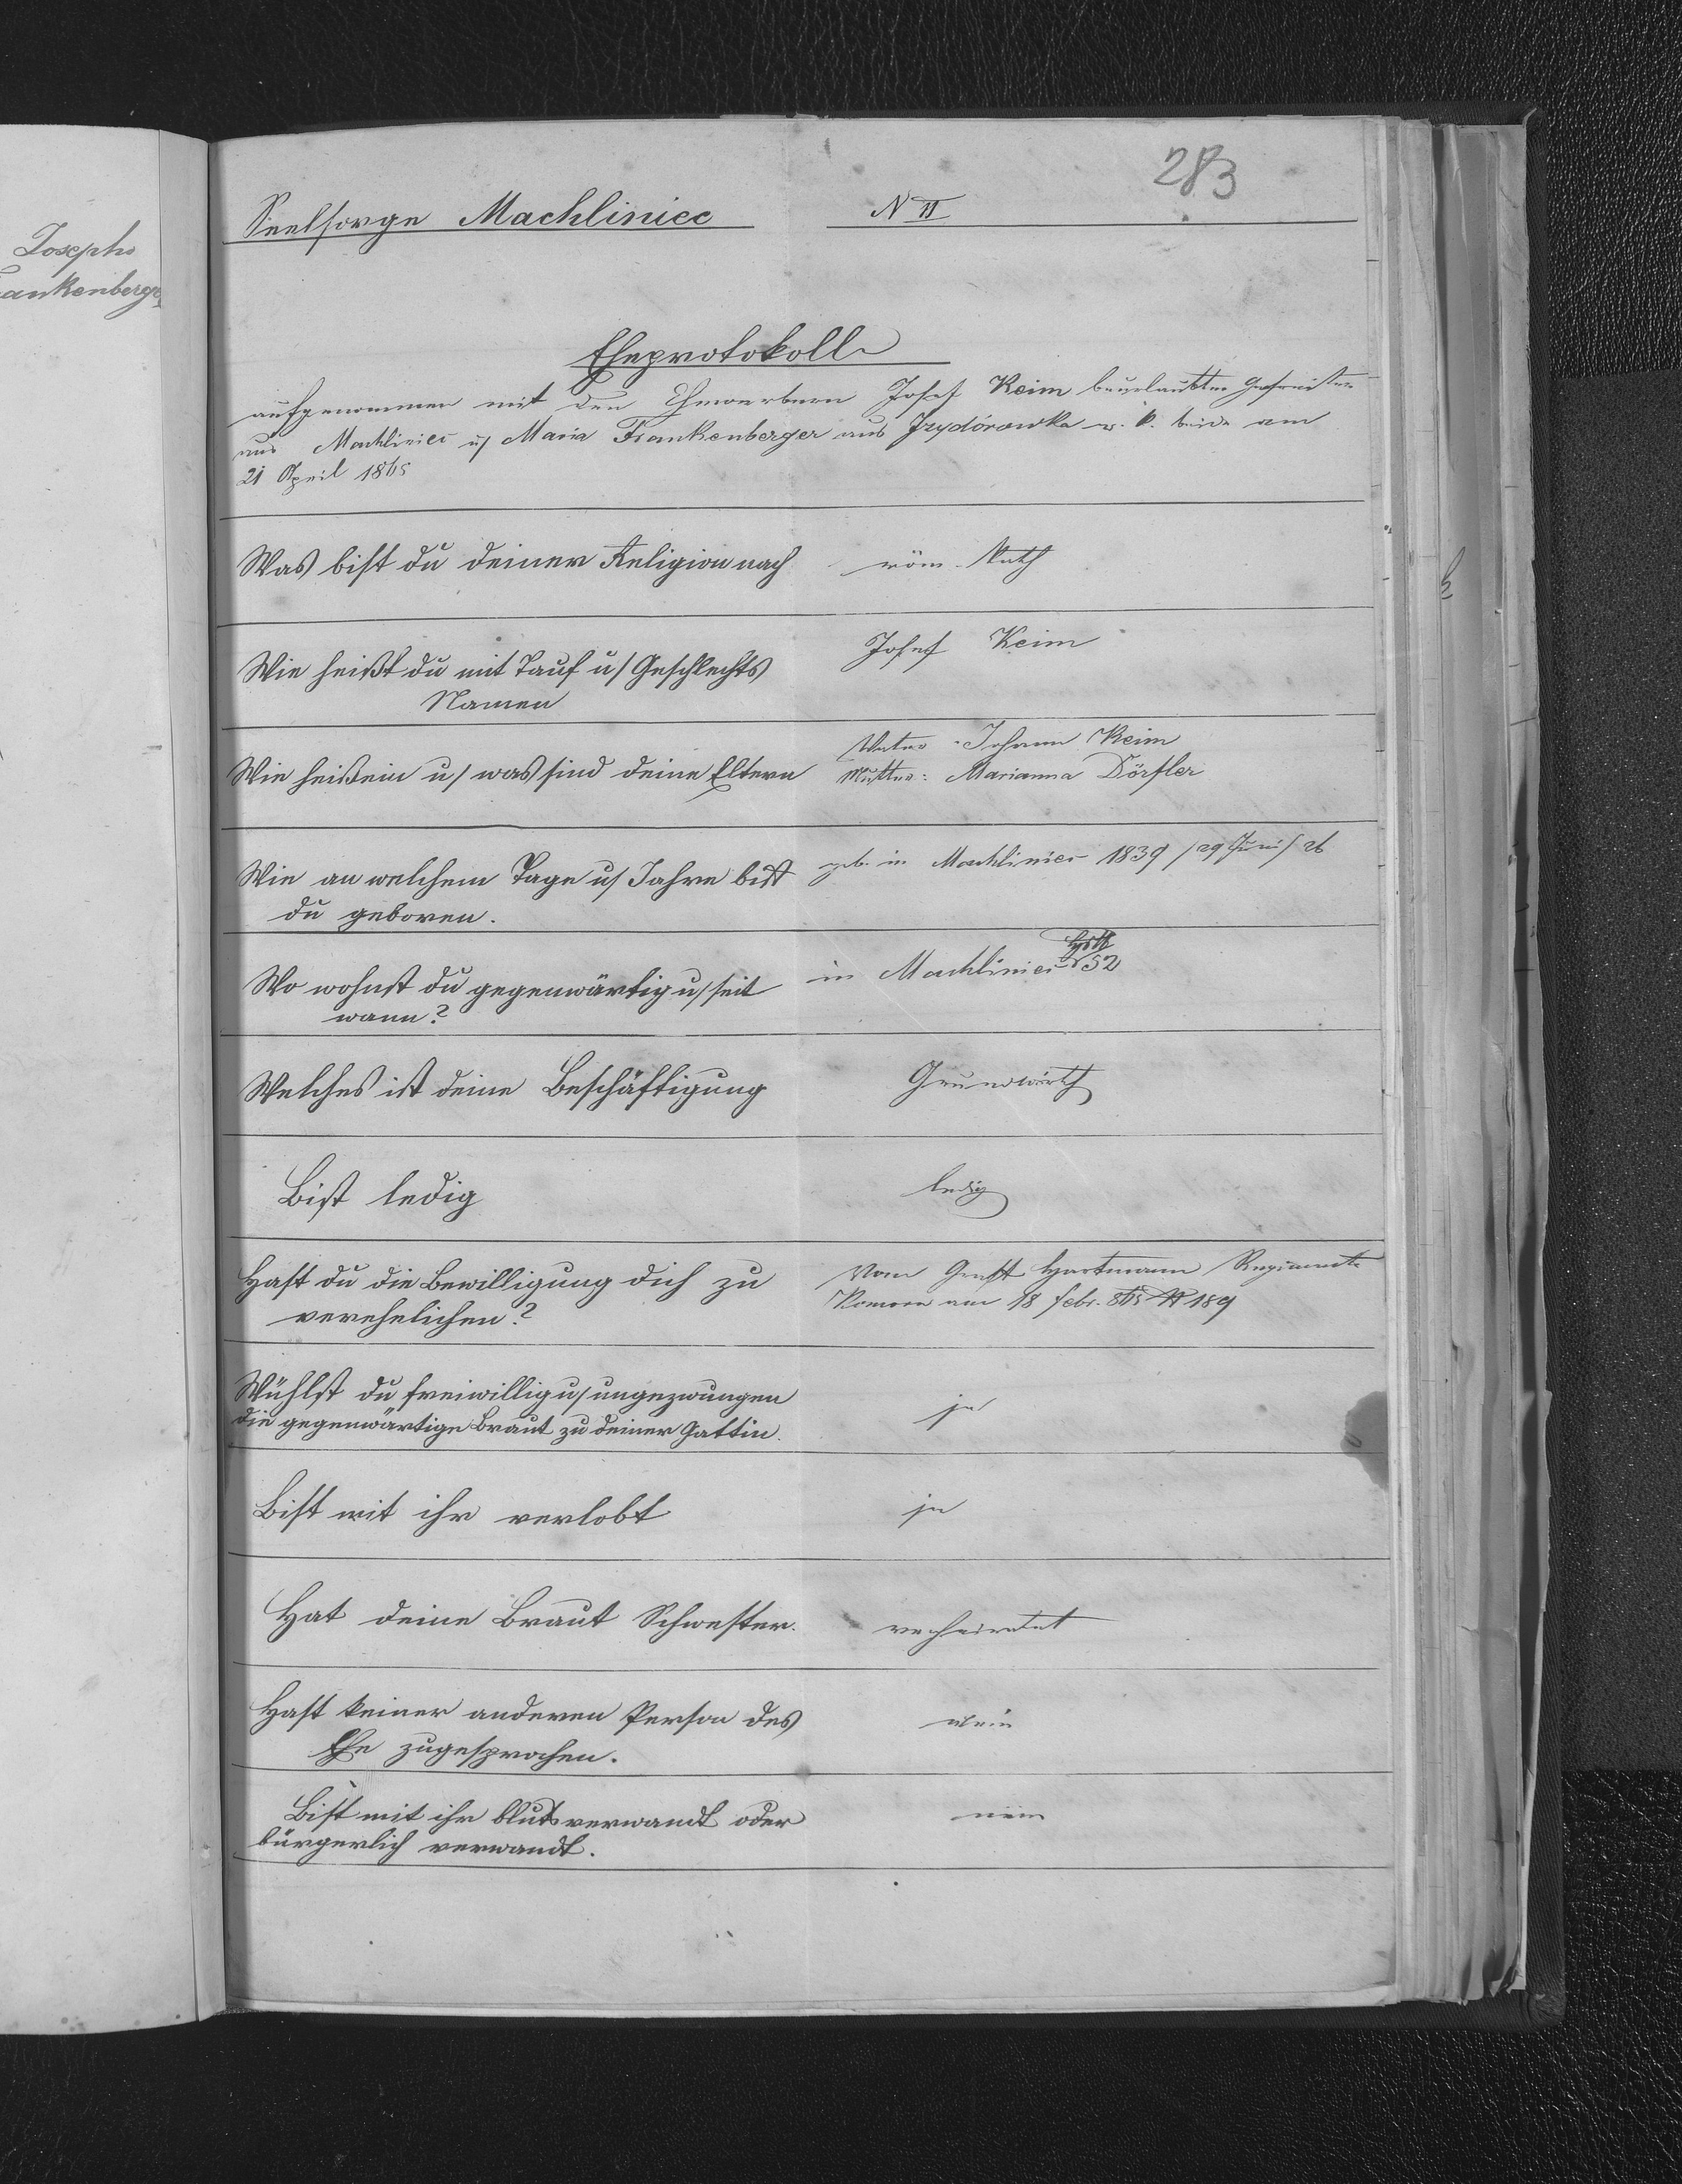 283
Josepho
Frankenberger
Seelsorge Machliniec N II
Eheprotokoll
aufgenommen mit den Ehewerbern Josef Keim beurlaubter Gefreiter
aus Machliniec u/ Maria Frankenberger aus Izydórowka r. k. beide am
21 April 1865
Was bist du deiner Religion nach röm. kath
Wie heißt du mit Tauf u/ Geschlechts Josef Keim
Namen
Vater: Johann Keim
Wie heißein u/ was sind deine Eltern Mutter: Marianna Dörfler
Wie an welchem Tage u/ Jahre bist geb. in Machliniec 1839 /29 Juni/ 26
du geboren.
Wo wohnst du gegenwärtig u/ seit in Machliniec 52
wann?
Welches ist deine Beschäftigung Grundwirth
Bist ledig ledig
Hast du die Bewilligung dich zu Vom Hartmann Regiments
verehelichen? am 18 Febr. 865 N 189
Wühlst du freiwillig u/ ungezwungen ja
die gegenwärtige Braut zu deiner Gattin.
Bist mit ihr verlobt ja
Hat deine Braut Schwester. verheiratet
Hast keiner anderen Person des nein
Ehe zugesprochen.
Bist mit ihr blutsverwandt oder nein
bürgerlich verwandt.